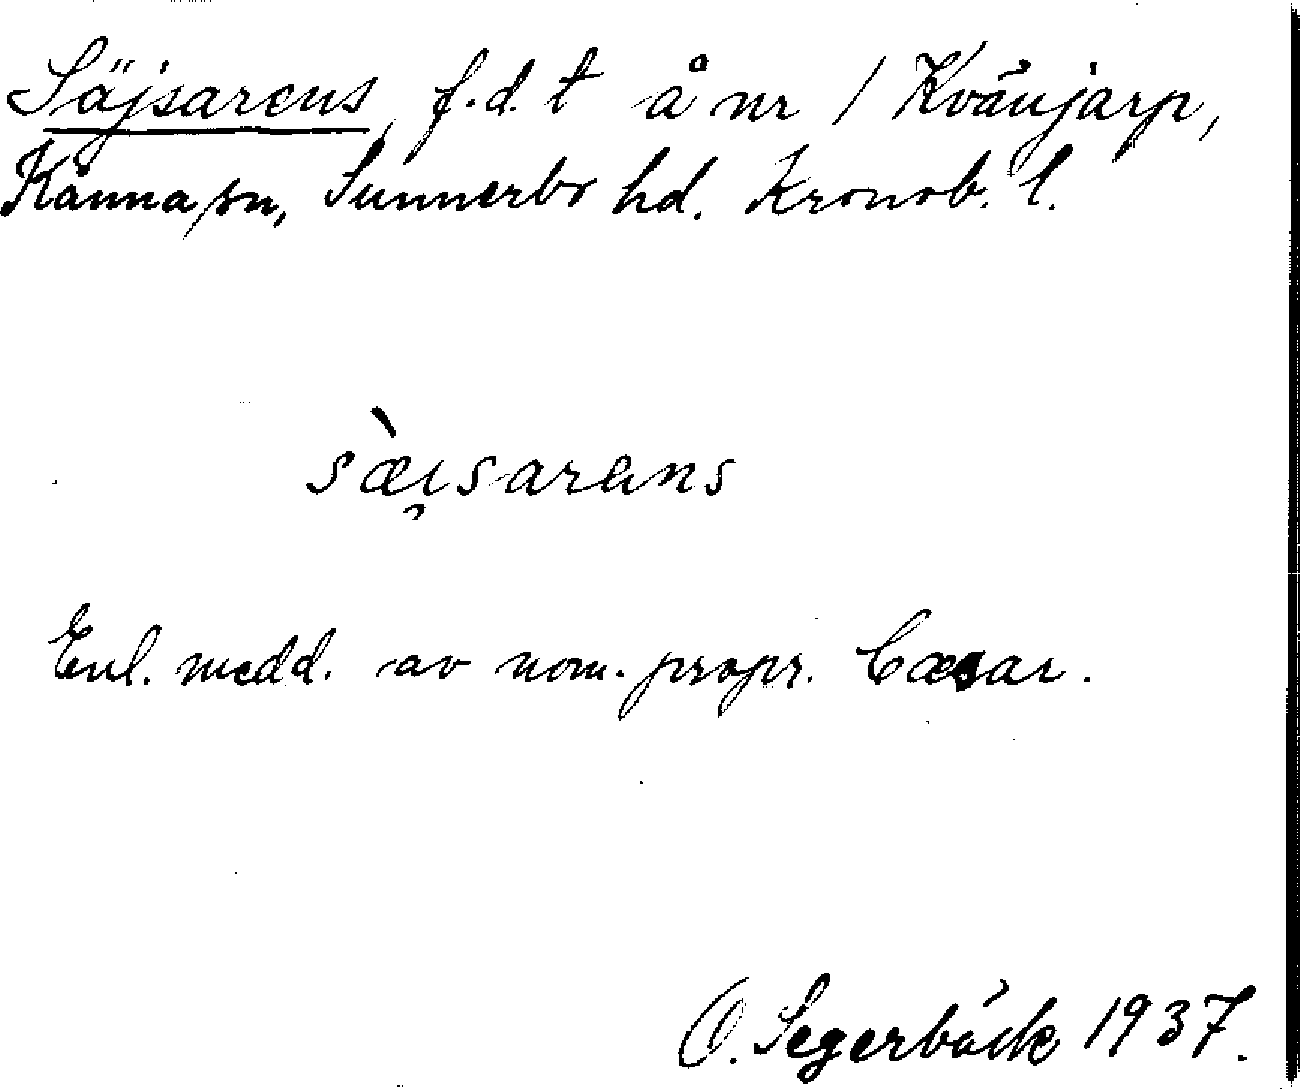 Säjsarens, f.d. t å nr 1 Kvänjarp,
Kånna sn, Sunnerbo hd. Kronob. l.
sæ̀i̯sarans
Enl. medd. av nom. propr. Cæsar.
O. Segerbäck 1937.